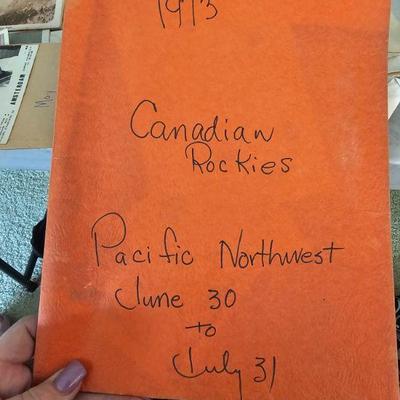 1973
Canadian
Rockies
Pacific Northwest
June 30
to
July 31
AMSTERDAM
May